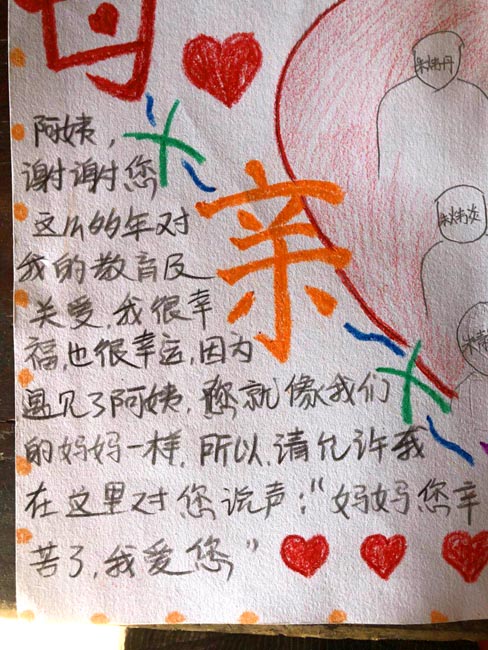 母
亲
阿姨,
谢谢您
这么多年对
我的教育及
关爱,我很幸
福,也很幸运,因为
遇见了阿姨,您就像我们
的妈妈一样,所以,请允许我
在这里对您说声:“妈妈您辛
苦了,我爱您”